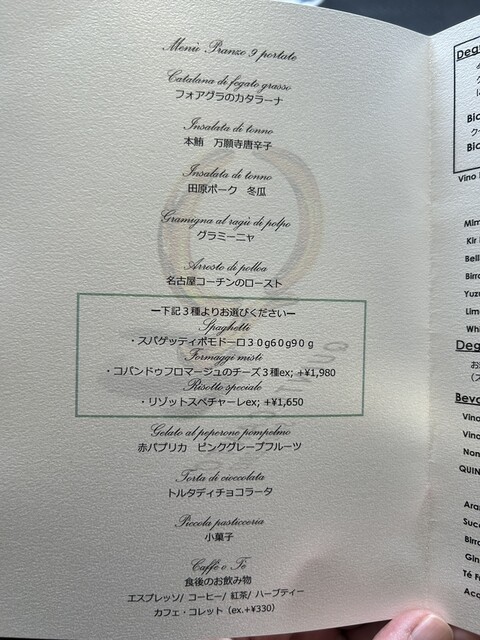 Menù Pranzo 9 portate
Catalana di fegato grasso
フォアグラのカタラーナ
Insalata di tonno
本鮪　万願寺唐辛子
Insalata di tonno
田原ポーク　冬瓜
Gramigna al ragù di polpo
グラミーニャ
Arrosto di polloa
名古屋コーチンのロースト
ー下記３種よりお選びくださいー
Spaghetti
・スパゲッティポモドーロ３０g６0g９０g
Formaggi misti
・コバンドゥフロマージュのチーズ３種ex; +¥1,980
Risotto speciale
・リゾットスペチャーレex; +¥1,650
Gelato al peperone pompelmo
赤パプリカ　ピンクグレープフルーツ
Torta di cioccolata
トルタディチョコラータ
Piccola pasticceria
小菓子
Caffè o Tè
食後のお飲み物
エスプレッソ/ コーヒー/ 紅茶/ ハーブティー
カフェ・コレット（ex.+¥330）
Deg
Bic
Bic
Vino
Mim
Kir
Bell
Birra
Yuzu
Lim
Whi
Deg
お
Beva
Vino
Vino
Non
QUIN
Aran
Succ
Birra
Gin
Té F
Acq